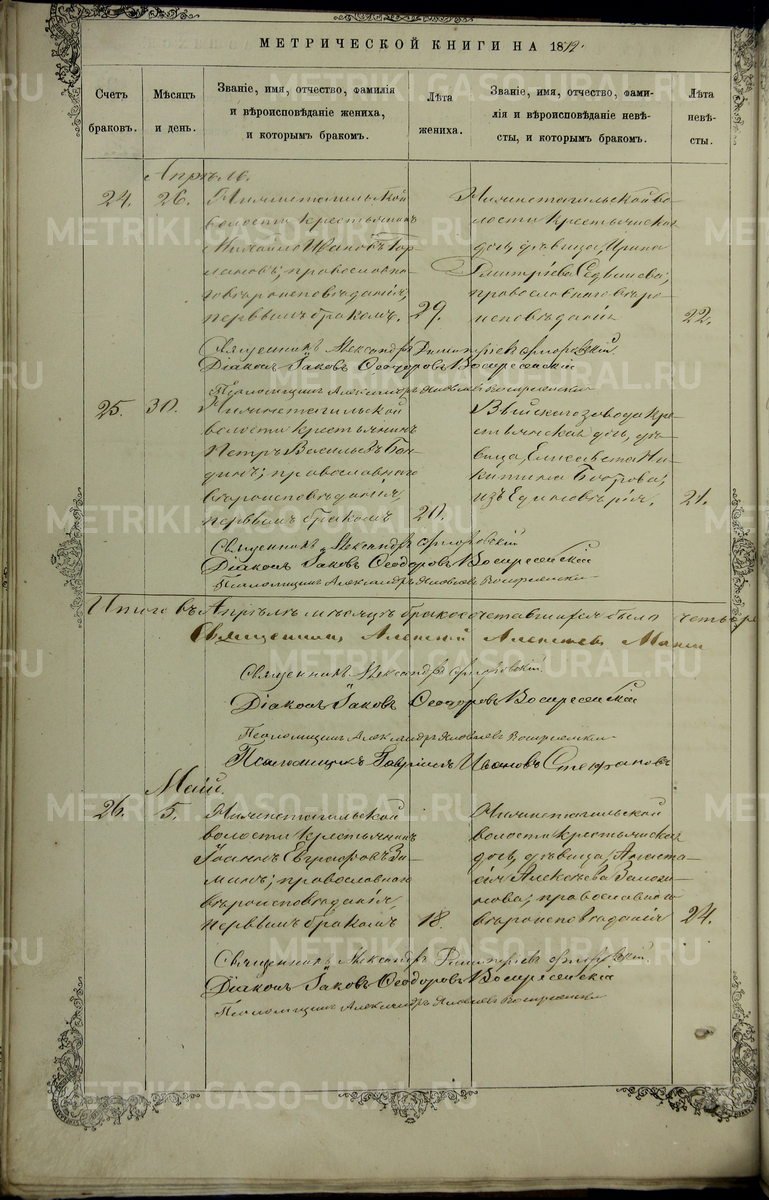 МЕТРИЧЕСКОЙ КНИГИ НА 1872.
Счетъ браковъ.
Мѣсяцъ и день.
Званіе, имя, отчество, фамилія
и вѣроисповѣданіе жениха,
и которымъ бракомъ.
Лѣта жениха.
Званіе, имя, отчество, фами-
лія и вѣроисповѣданіе невѣ-
сты, и которымъ бракомъ.
Лѣта невѣ-
сты.
Апрѣль.
24.
26.
Нижнетагильской
волости крестьянинъ
Михаило Ивановъ Гор-
лановъ; православна-
го вѣроисповѣданія,
первымъ бракомъ.
29.
Нижнетагильской во-
лости крестьянская
дочь, дѣвица, Ирина
Дмитріева
православнаго вѣро-
исповѣданія
22.
Священникъ Александръ Димитріевъ Флоровскій
Діаконъ Іаковъ Ѳеодоровъ Воскресенскій
Псаломщикъ Александръ Яковлевъ Воскресенскій
25.
30.
Нижнетагильской
волости крестьянинъ
Петръ Васильевъ Бон-
динъ; православнаго
вѣроисповѣданія,
первымъ бракомъ
20.
Выйскаго завода кре-
стьянская дочь, дѣ-
вица, Елисавета Ни-
китина
изъ Единовѣрія.
21.
Священникъ Александръ Флоровскій
Діаконъ Іаковъ Ѳеодоровъ Воскресенскій
Псаломщикъ Александръ Яковлевъ Воскресенскій
Итого въ Апрѣлѣ мѣсяцѣ бракосочетавшихся было четыре
Священникъ Алексій Алексѣевъ
Священникъ Александръ Флоровскій
Діаконъ Іаковъ Ѳеодоровъ Воскресенскій
Псаломщикъ Александръ Яковлевъ Воскресенскій
Псаломщикъ Гавріилъ Ивановъ Стефановъ
Май.
26.
5.
Нижнетагильской
волости крестьянинъ
Іоаннъ Евграфовъ Зи-
минъ; православнаго
вѣроисповѣданія,
первымъ бракомъ
18.
Нижнетагильской
волости крестьянская
дочь, дѣвица, Анаста-
сія Алексѣева
православнаго
вѣроисповѣданія
24.
Священникъ Александръ Димитріевъ Флоровскій
Діаконъ Іаковъ Ѳеодоровъ Воскресенскій
Псаломщикъ Александръ Яковлевъ Воскресенскій
METRIKI.GASO-URAL.RU